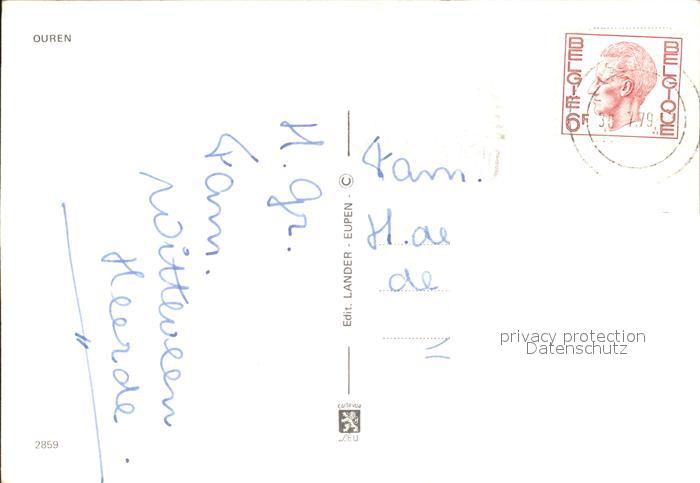 OUREN
BELGIE
BELGIQUE
6F
30 7.79
H. gr.
Fam.
Heerde.
2859
Edit. LANDER - EUPEN - ©
Fam.
H. de
de
privacy protection
Datenschutz